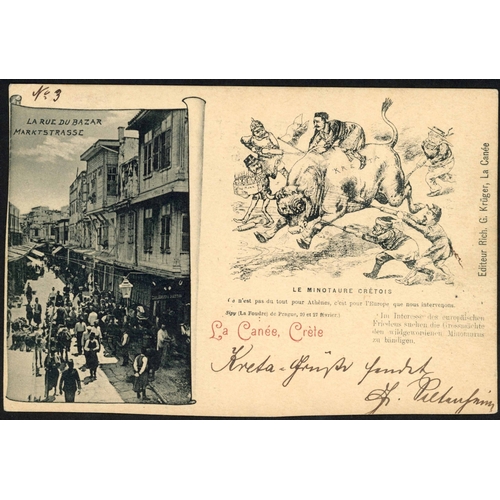 No 3
LA RUE DU BAZAR
MARKTSTRASSE
LE MINOTAURE CRÉTOIS
Ce n'est pas du tout pour Athènes, c'est pour l'Europe que nous intervenons.
Sipy (La Foudre) de Prague, 20 et 27 Février.
Im Interesse der europäischen
Friedens suchen die Grossmächte
den wildgewordenen Minotaurus
zu bändigen.
La Canée, Crète
Kreta-Grüße sendet
Editeur Rich. G. Krüger, La Canée